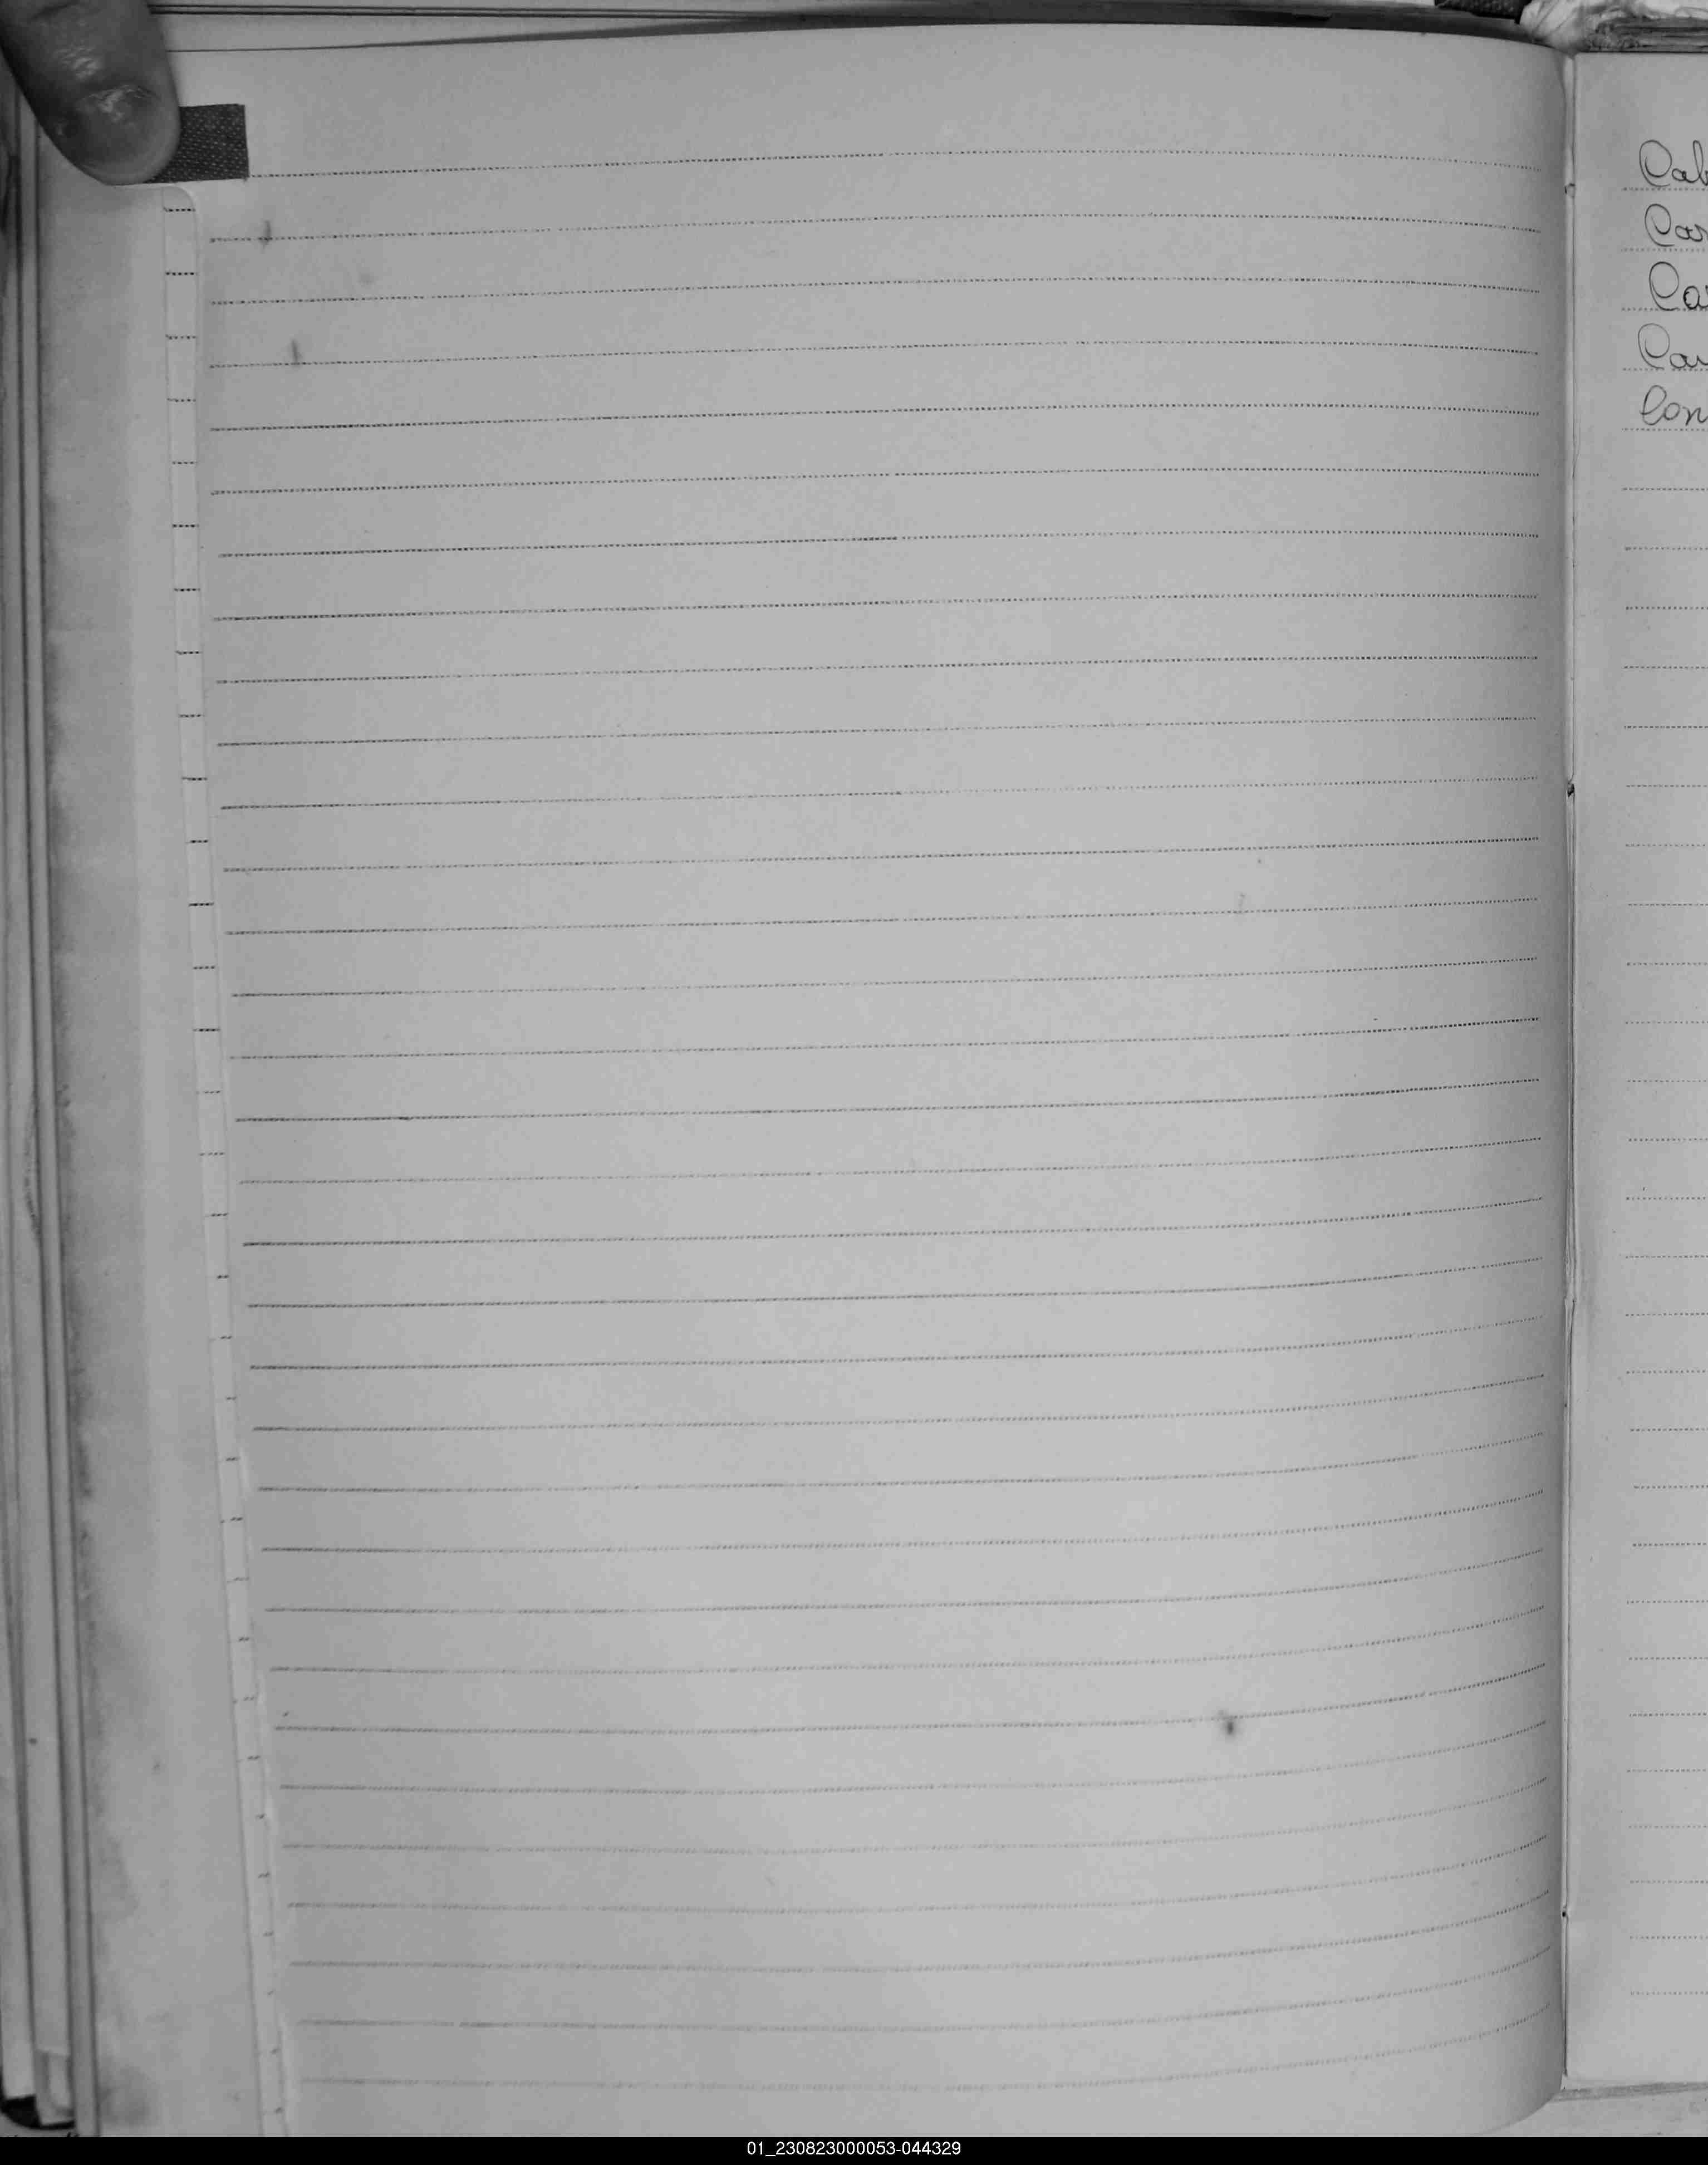 Cab
Car
Ca
Car
Con
01_230823000053-044329